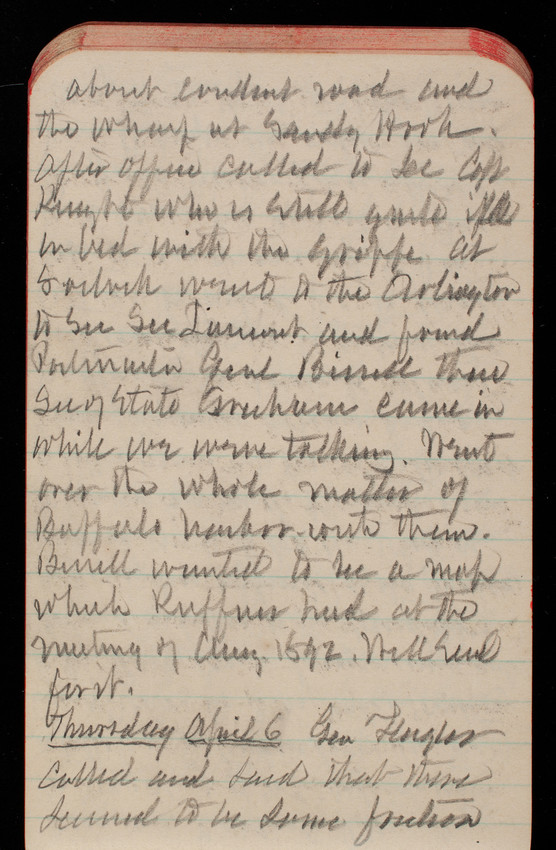 about conduit road and
the wharf at Sandy Hook.
After office called to see Capt
Knight who is still quite ill
in bed with the Grippe at
5 oclock went to the Arlington
to see Sec Lamont and found
Postmaster Genl Bissell there
Sec of State Gresham came in
while we were talking. Went
over the whole matter of
Buffalo harbor with them.
Bissell wanted to see a map
which Ruffner had at the
meeting of Aug. 1892. Will send
for it.
Thursday April 6 Gen Flagler
called and said that there
seemed to be some friction